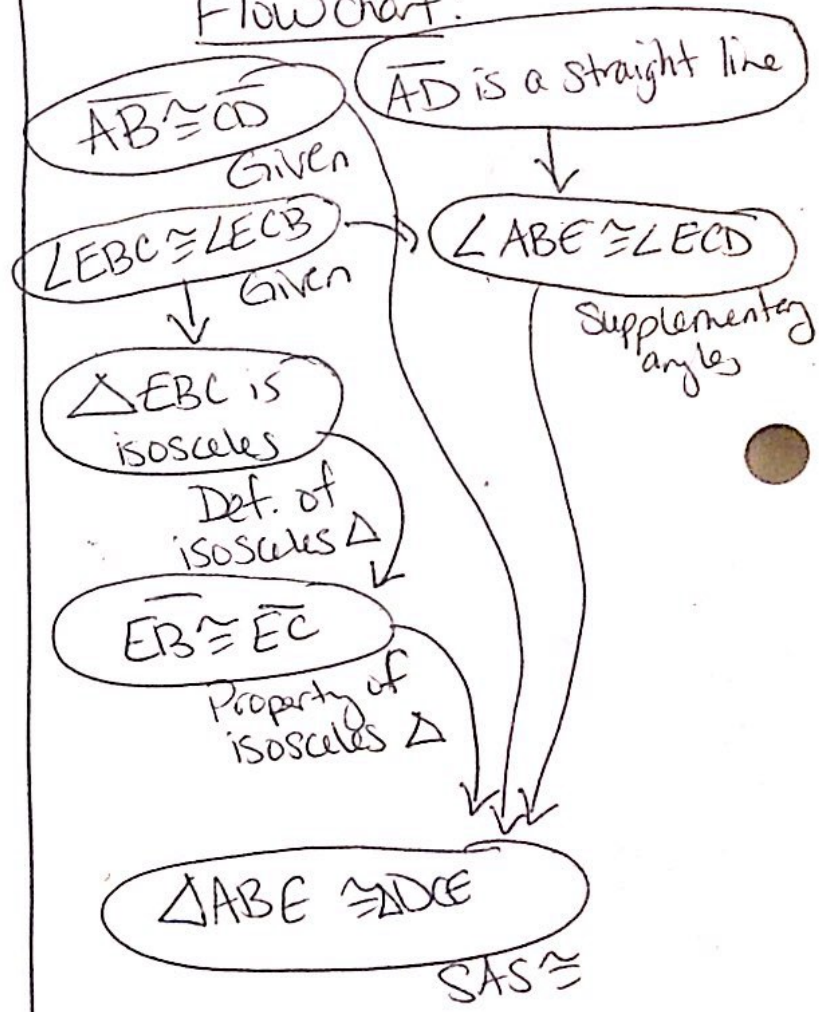 Flow chart:
A̅D̅ is a straight line
A̅B̅ ≅ C̅D̅
Given
∠EBC ≅ ∠ECB
Given
∠ABE ≅ ∠ECD
Supplementary
angles
△EBC is
isosceles
Def. of
isosceles △
E̅B̅ ≅ E̅C̅
Property of
isosceles △
△ABE ≅ △DCE
SAS ≅